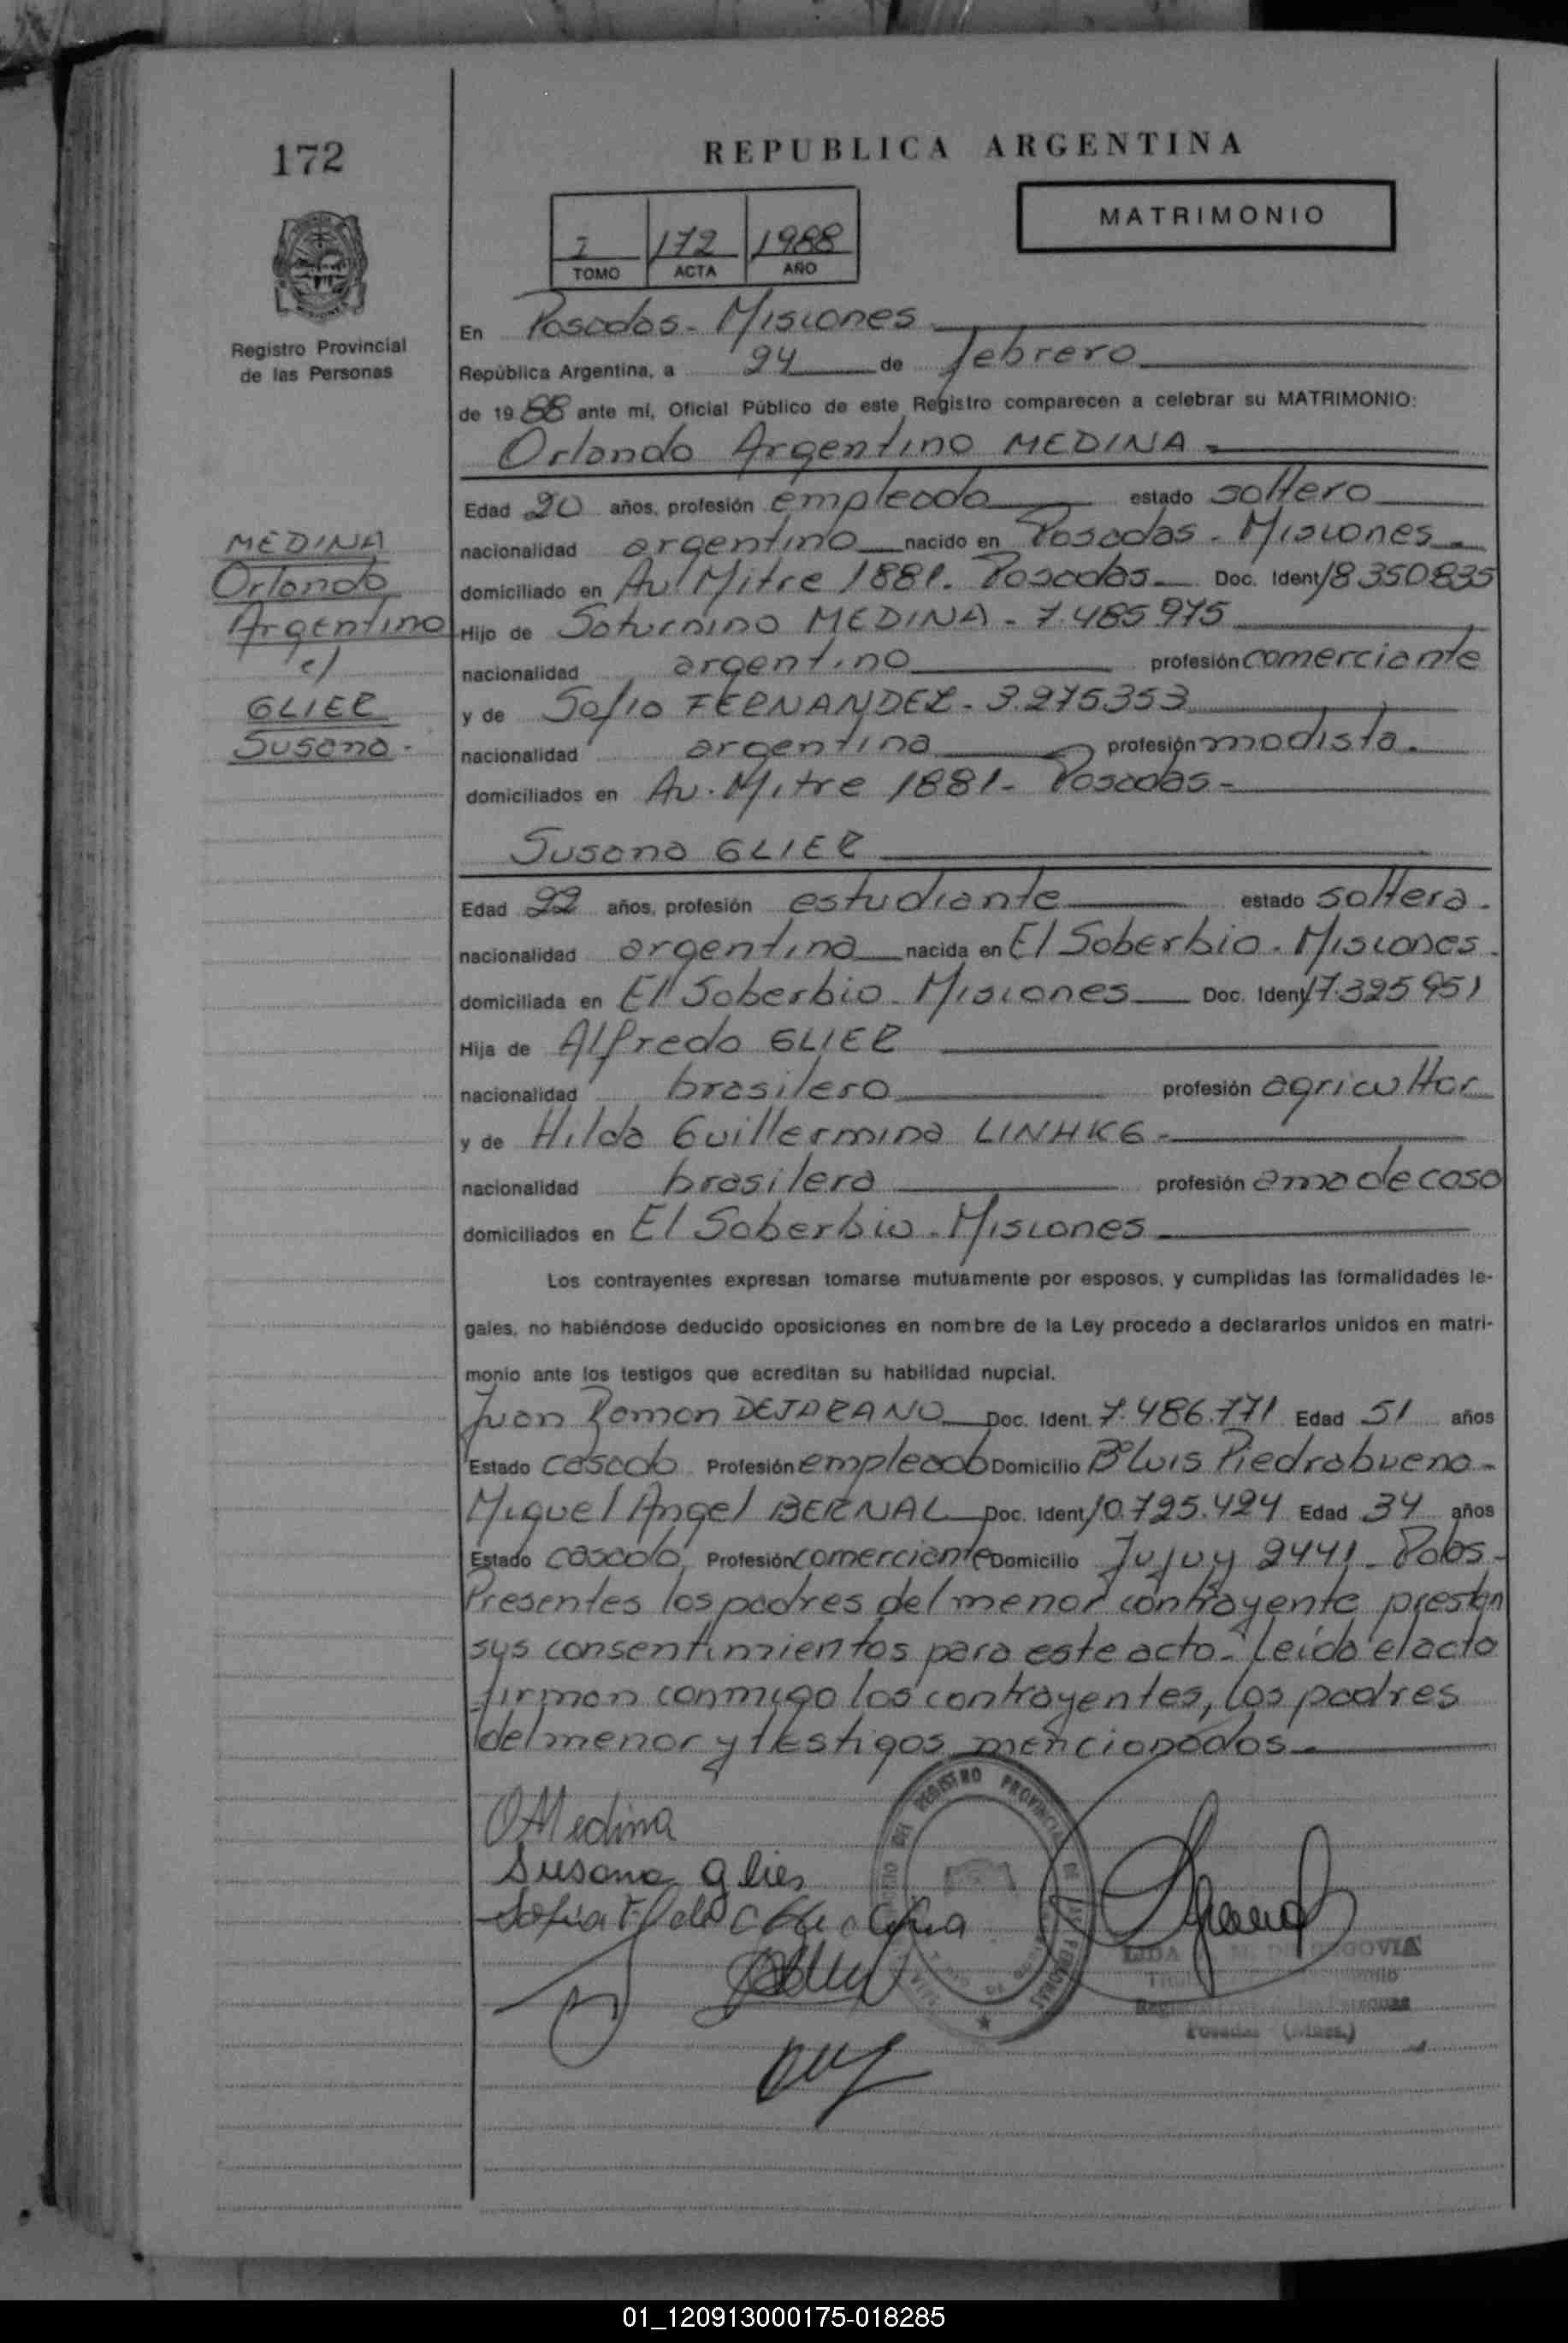 172
REPUBLICA ARGENTINA
MATRIMONIO
I 172 1988
TOMO ACTA AÑO
Registro Provincial
de las Personas
En Posadas - Misiones
República Argentina, a 24 de febrero
de 1988 ante mí, Oficial Público de este Registro comparecen a celebrar su MATRIMONIO:
Orlando Argentino MEDINA -
Edad 20 años, profesión empleado estado soltero
nacionalidad argentino nacido en Posadas - Misiones -
domiciliado en Av Mitre 1881. Posadas - Doc. Ident 18350835
Hijo de Saturnino MEDINA - 7.485975
nacionalidad argentino profesión comerciante
y de Sofia FERNANDEZ - 3.275353
nacionalidad argentina profesión modista.
domiciliados en Av. Mitre 1881 - Posadas -
MEDINA
Orlando
Argentino
c/
GLIER
Susana.
Susana GLIER
Edad 22 años, profesión estudiante estado soltera.
nacionalidad argentina nacida en El Soberbio - Misiones.
domiciliada en El Soberbio - Misiones Doc. Ident 17.325951
Hija de Alfredo GLIER
nacionalidad brasilero profesión agricultor
y de Hilda Guillermina LINHKG -
nacionalidad brasilera profesión ama de casa
domiciliados en El Soberbio - Misiones
Los contrayentes expresan tomarse mutuamente por esposos, y cumplidas las formalidades le-
gales, no habiéndose deducido oposiciones en nombre de la Ley procedo a declararlos unidos en matri-
monio ante los testigos que acreditan su habilidad nupcial.
Juan Ramon BEJARANO Doc. Ident. 7.486.771 Edad 51 años
Estado casado Profesión empleado Domicilio Bº Luis Piedrabuena -
Miguel Angel BERNAL Doc. Ident 10.725.424 Edad 34 años
Estado casado Profesión comerciante Domicilio Jujuy 2441 - Pdas -
Presentes los padres del menor contrayente prestan
sus consentimientos para este acto - Leída el acta
firman conmigo los contrayentes, los padres
del menor y testigos mencionados -
OMedina
Susana glier
Sofia F de
REGISTRO PROVINCIAL DE LAS PERSONAS
LIDA M. DE SEGOVIA
Posadas (Mnes.)
01_120913000175-018285